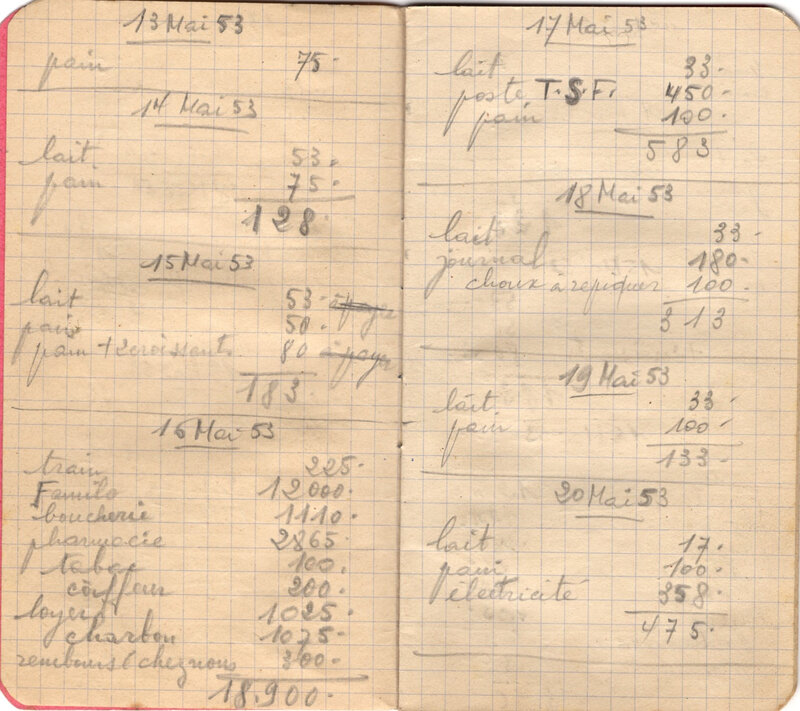 13 Mai 53
pain 75.
14 Mai 53
lait 53.
pain 75.
128.
15 Mai 53
lait 53. à payer
pain 50.
pain + 2 croissants 80 à payer
183.
16 Mai 53
train 225.
Familo 12000.
boucherie 1110.
pharmacie 2865.
tabac 100.
coiffeur 200.
loyer 1025.
charbon 1075.
300.
18.900.
17 Mai 53
lait 33.
poste T.S.F. 450.
pain 100.
583
18 Mai 53
lait 33.
journal 180.
choux à repiquer 100.
313
19 Mai 53
lait 33.
pain 100.
133.
20 Mai 53
lait 17.
pain 100.
électricité 358.
475.